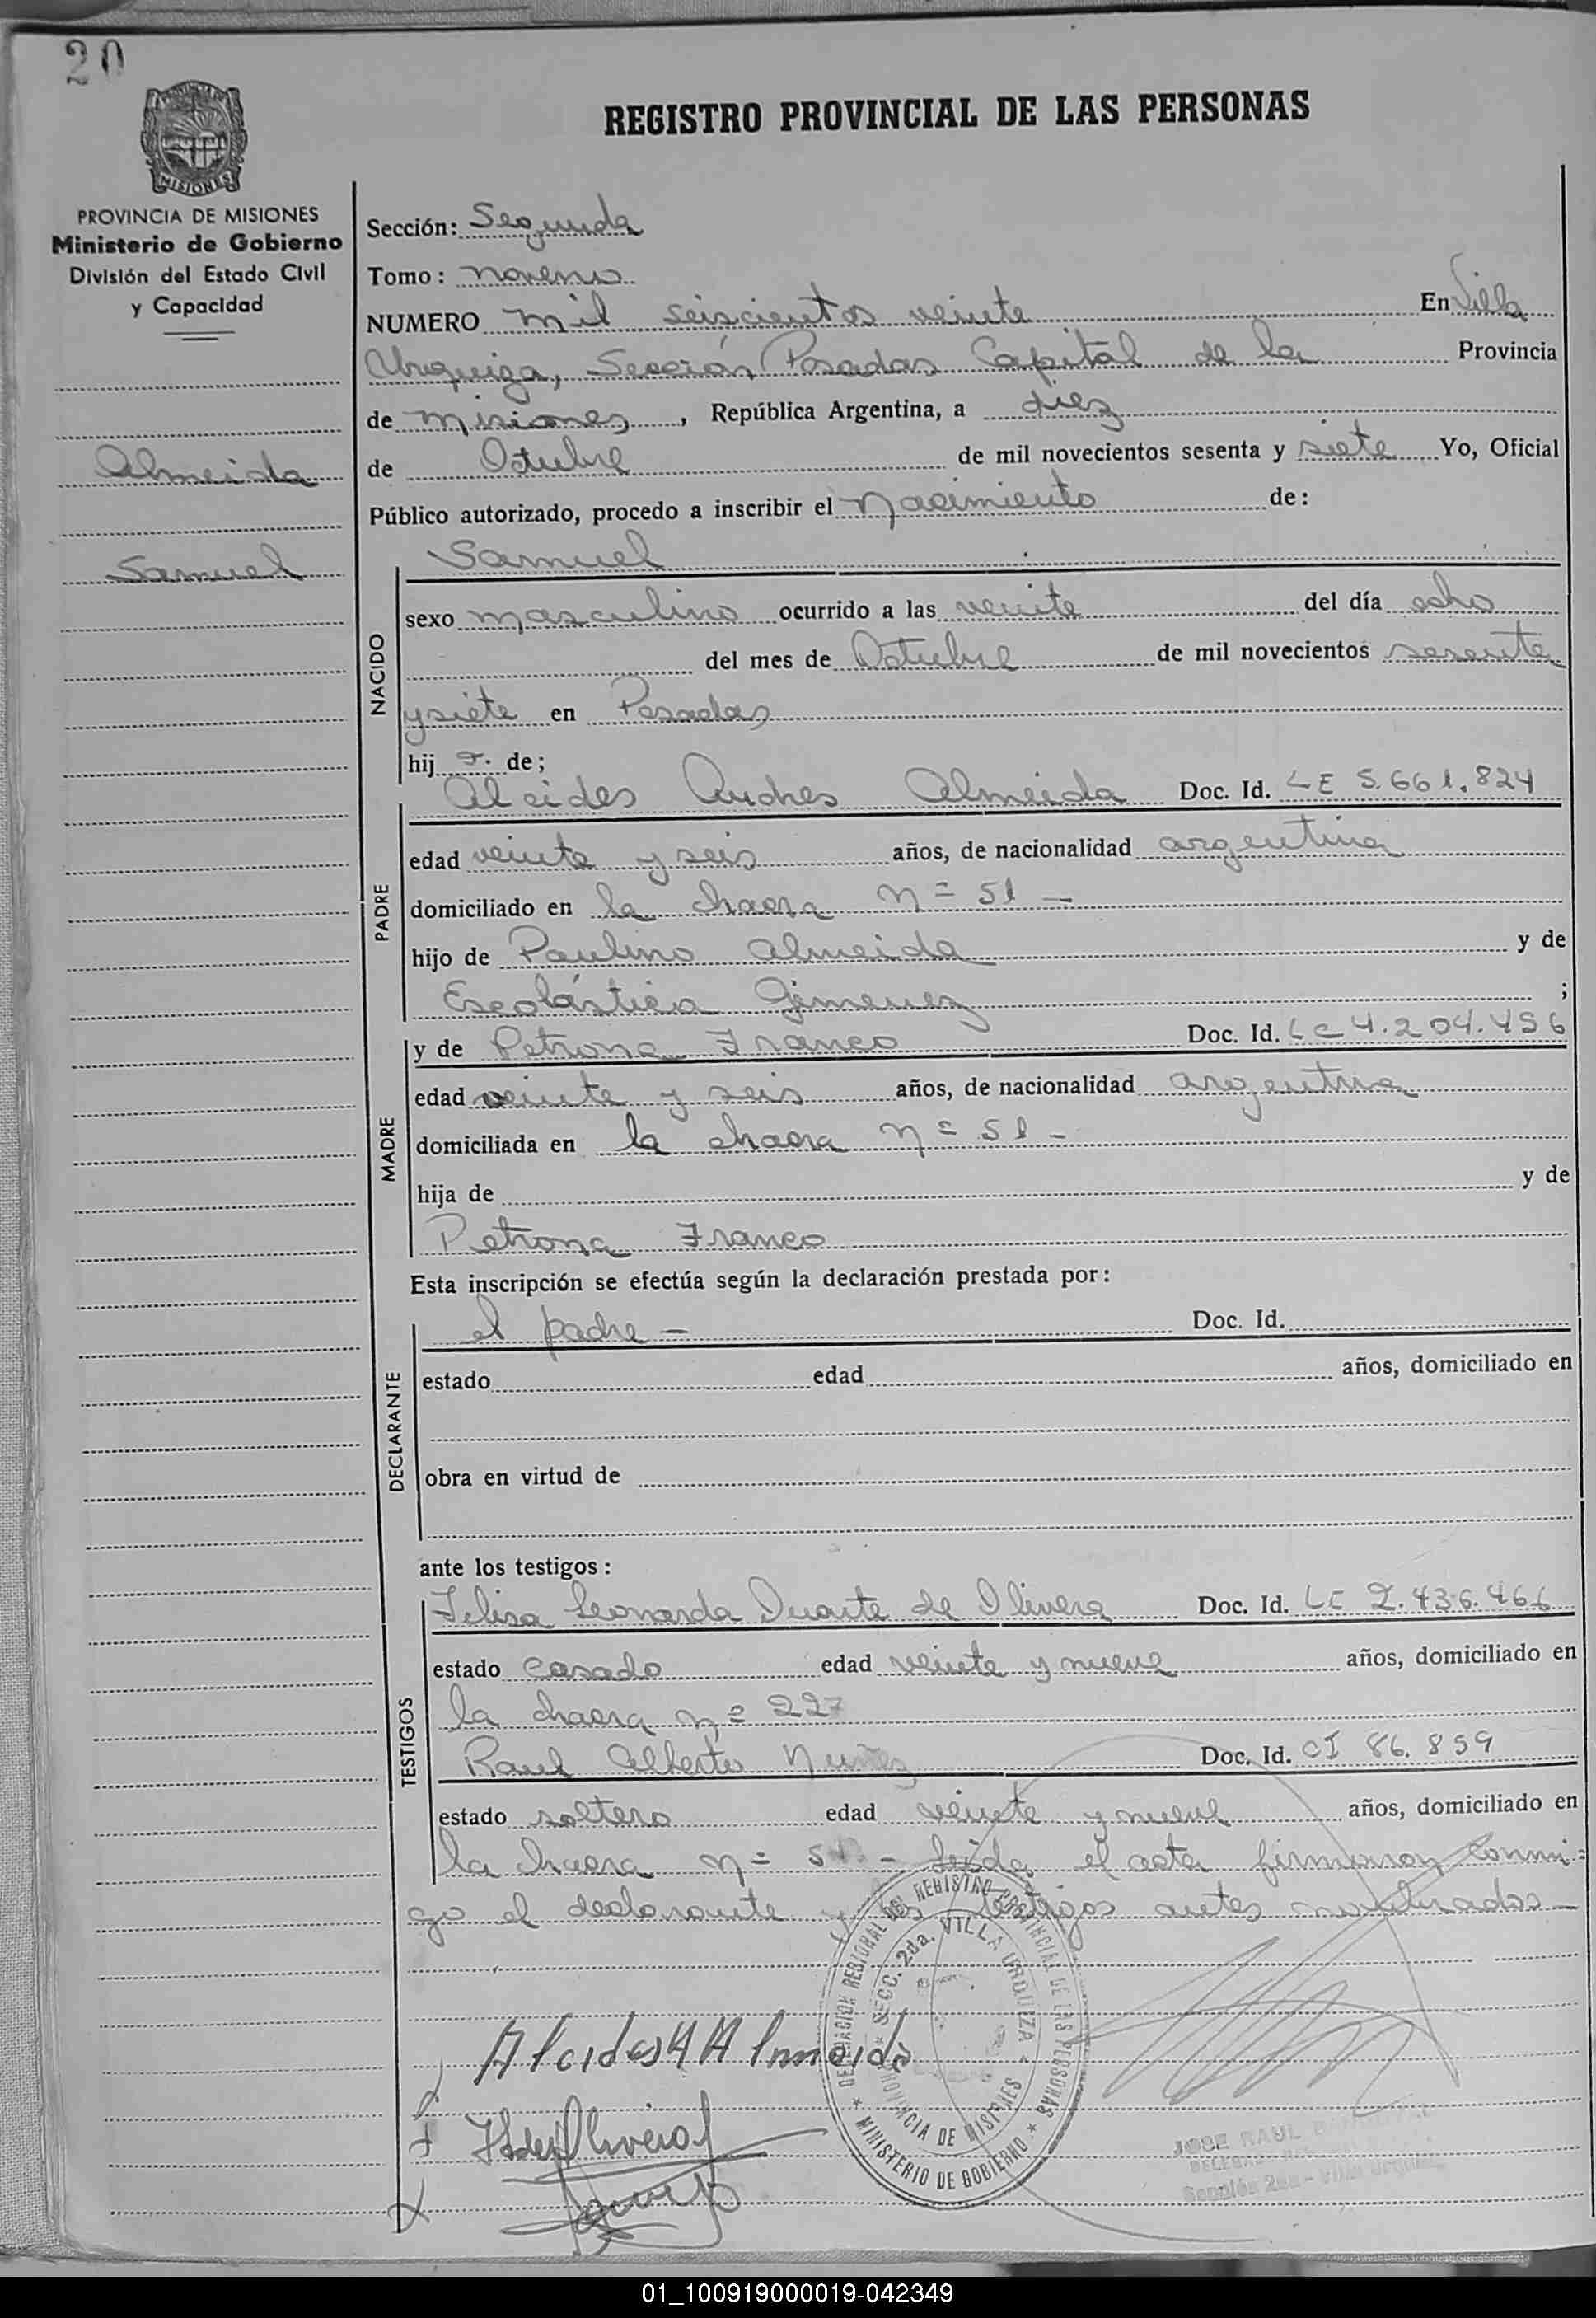 20
REGISTRO PROVINCIAL DE LAS PERSONAS
MISIONES
PROVINCIA DE MISIONES
Ministerio de Gobierno
División del Estado Civil
y Capacidad
Almeida
Samuel
Sección: Segunda
Tomo: noveno
NUMERO mil seiscientos veinte En Villa
Urquiza, Sección Posadas Capital de la Provincia
de misiones, República Argentina, a diez
de Octubre de mil novecientos sesenta y siete Yo, Oficial
Público autorizado, procedo a inscribir el Nacimiento de:
Samuel
NACIDO
sexo masculino ocurrido a las veinte del día ocho
del mes de Octubre de mil novecientos sesenta
y siete en Posadas
hij o. de;
PADRE
Alcides Andres Almeida Doc. Id. LE 5.661.824
edad veinte y seis años, de nacionalidad argentina
domiciliado en la chacra n= 51 -
hijo de Paulino Almeida y de
Escolástica Gimenez ;
MADRE
y de Petrona Franco Doc. Id. LC 4.204.456
edad veinte y seis años, de nacionalidad argentina
domiciliada en la chacra n= 51 -
hija de y de
Petrona Franco
Esta inscripción se efectúa según la declaración prestada por:
DECLARANTE
el padre - Doc. Id.
estado edad años, domiciliado en
obra en virtud de
ante los testigos:
TESTIGOS
Felisa Leonarda Duarte de Olivera Doc. Id. LC 2.436.466
estado casado edad veinte y nueve años, domiciliado en
la chacra n= 227
Raul Alberto Nuñez Doc. Id. CI 86.859
estado soltero edad veinte y nueve años, domiciliado en
la chacra n= - Leida el acta firmaron conmi=
go el declarante y los testigos antes nombrados -
Alcides A Almeida
DELEGACION REGIONAL DEL REGISTRO PROVINCIAL DE LAS PERSONAS
* MINISTERIO DE GOBIERNO *
SECC. 2da. VILLA URQUIZA
PROVINCIA DE MISIONES
JOSE RAUL
Sección 2da - Villa Urquiza
01_100919000019-042349